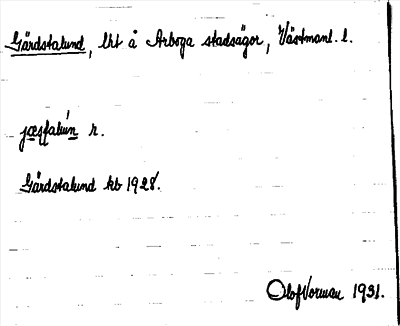 Gärdstalund, lht å Arboga stadsägor, Västmanl. l.
r.
Gärdstalund kb 1928.
Olof Vorman 1931.